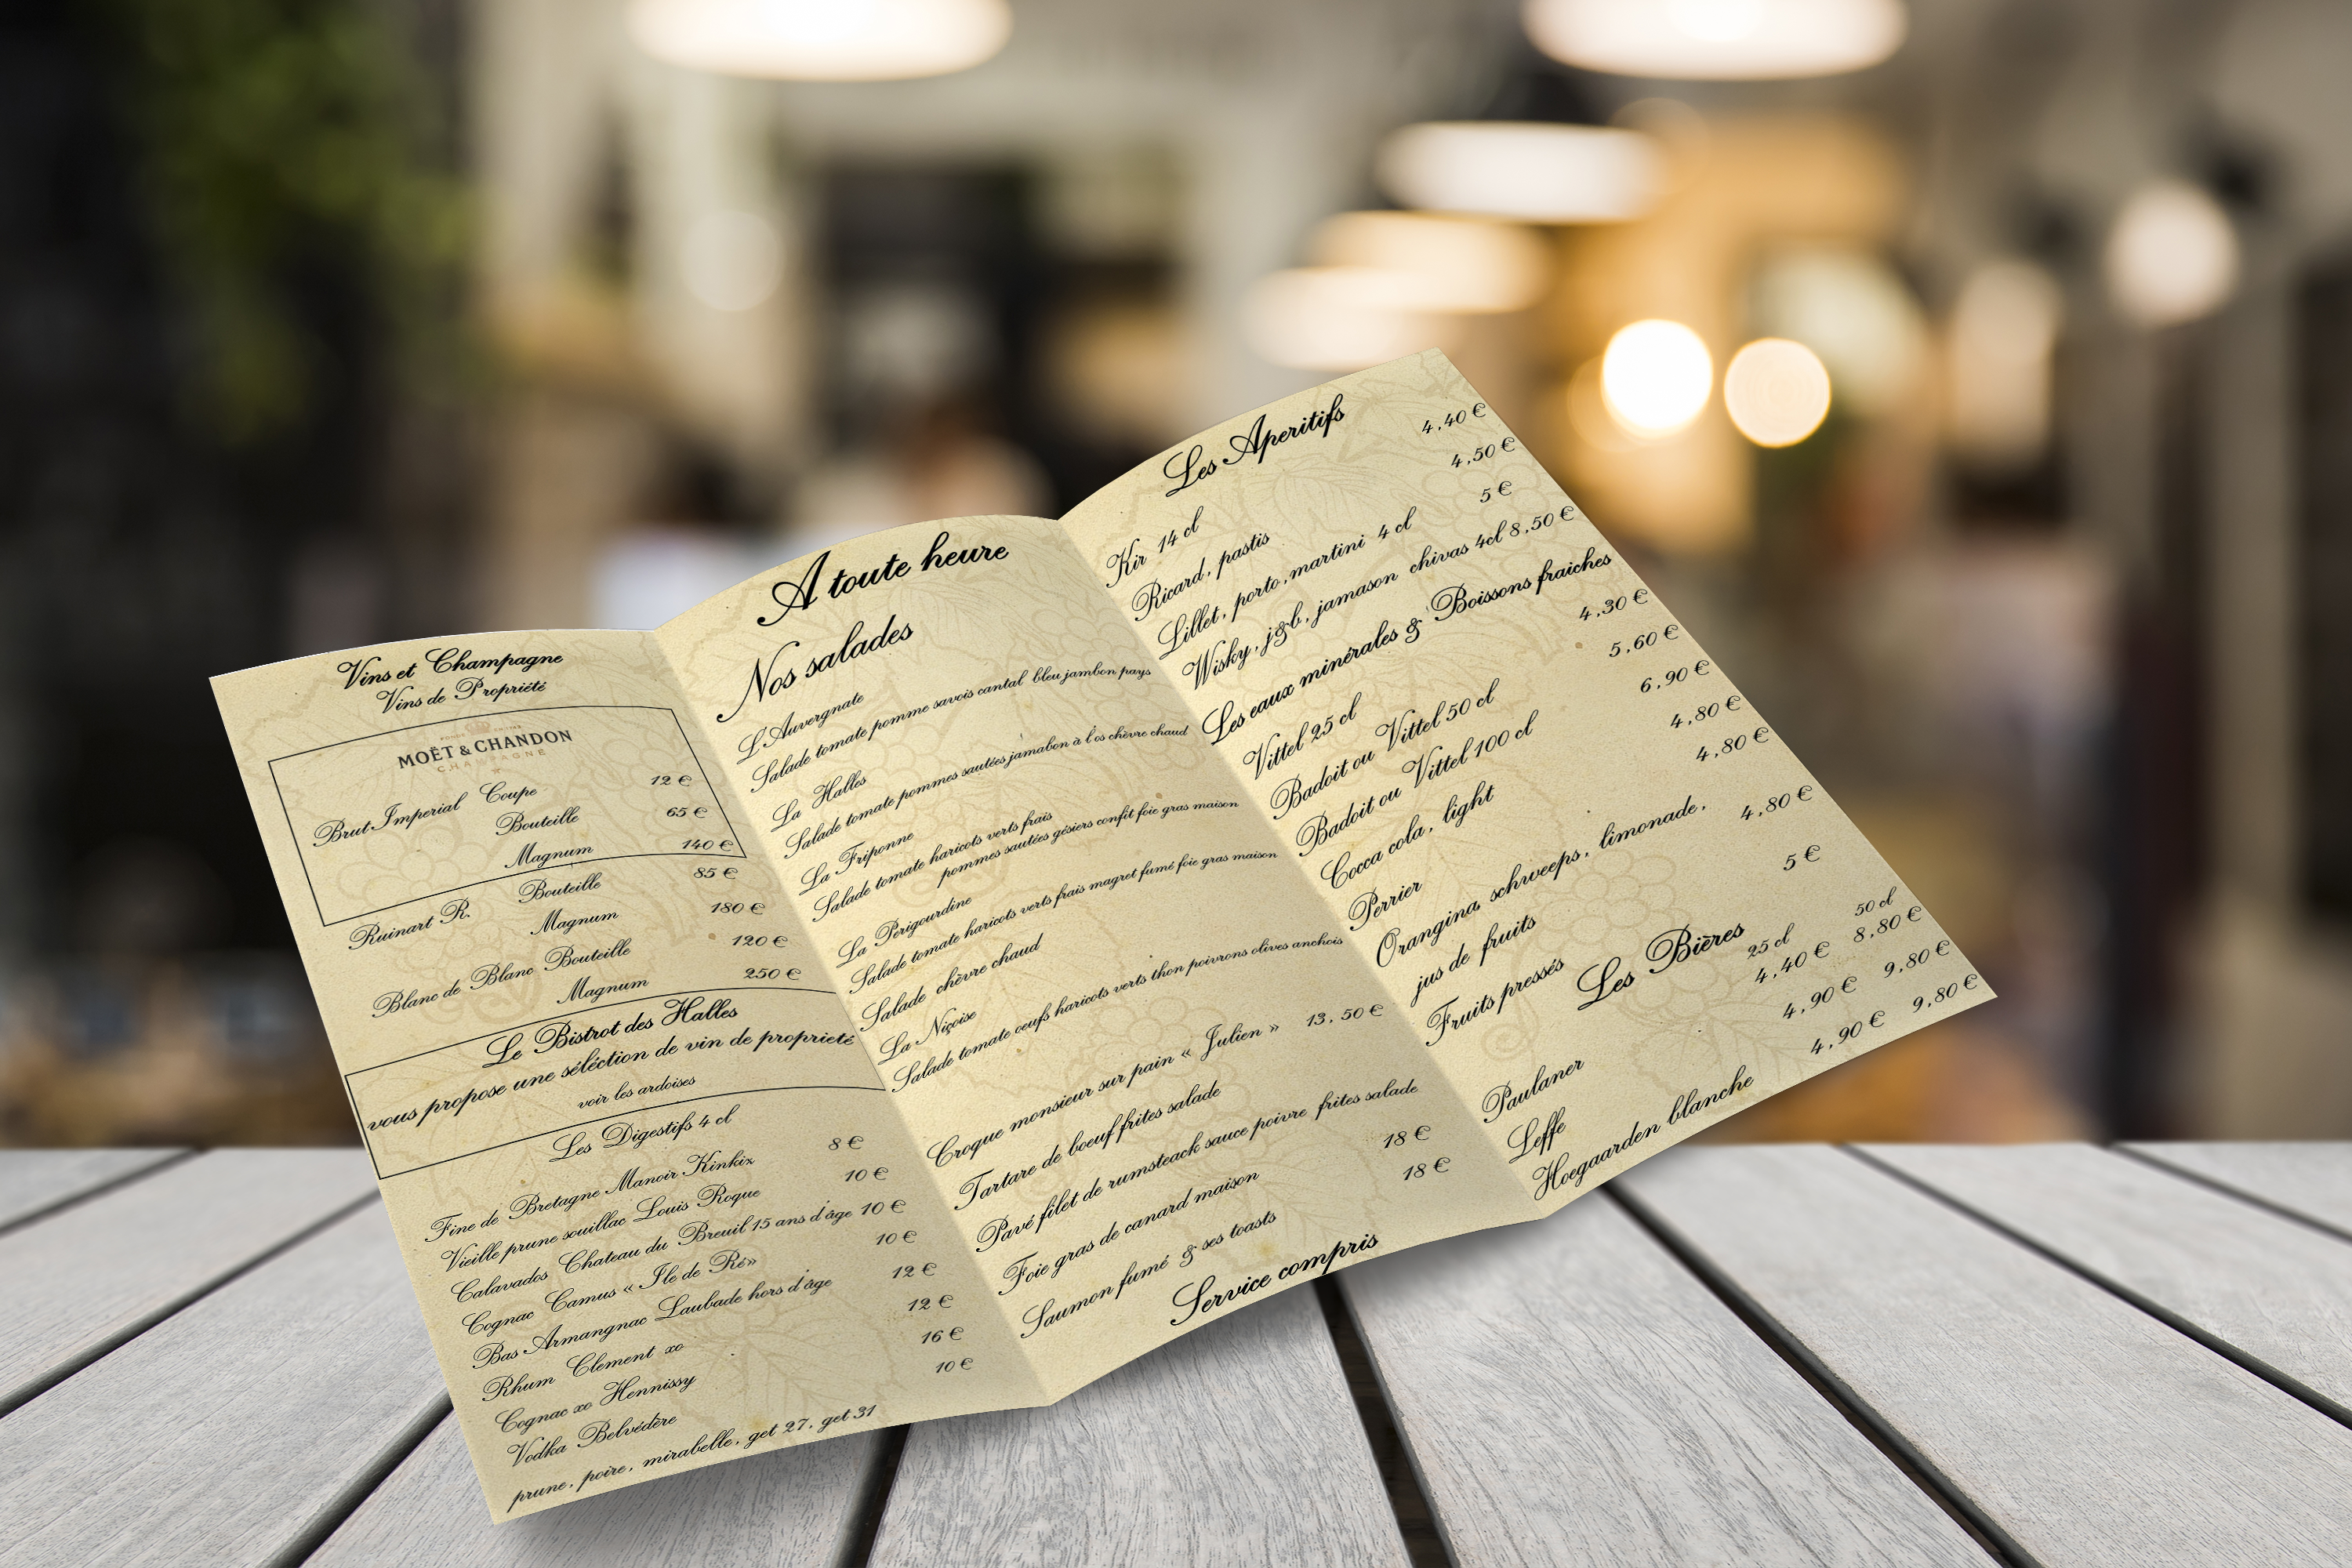 Vins et Champagne
Vins de Propriété
MOËT & CHANDON
CHAMPAGNE
Brut Imperial Coupe 12 €
Bouteille 65 €
Magnum 140 €
Ruinart R. Bouteille 85 €
Magnum 180 €
Blanc de Blanc Bouteille 120 €
Magnum 250 €
Le Bistrot des Halles
vous propose une séléction de vin de proprieté
voir les ardoises
Les Digestifs 4 cl
Fine de Bretagne Manoir Kinkix 8 €
Vieille prune souillac Louis Roque 10 €
Calavados Chateau du Breuil 15 ans d'âge 10 €
Cognac Camus « Ile de Ré» 10 €
Bas Armangnac Laubade hors d'âge 12 €
Rhum Clement xo 12 €
Cognac xo Hennissy 16 €
Vodka Belvédère 10 €
prune, poire, mirabelle, get 27, get 31
A toute heure
Nos salades
L'Auvergnate
Salade tomate pomme savois cantal bleu jambon pays
La Halles
Salade tomate pommes sautées jamabon à l'os chèvre chaud
La Friponne
Salade tomate haricots verts frais
pommes sautées gésiers confit foie gras maison
La Perigourdine
Salade tomate haricots verts frais magret fumé foie gras maison
Salade chèvre chaud
La Niçoise
Salade tomate oeufs haricots verts thon poivrons olives anchois
Croque monsieur sur pain « Julien » 13,50 €
Tartare de boeuf frites salade
Pavé filet de rumsteack sauce poivre frites salade
Foie gras de canard maison 18 €
Saumon fumé & ses toasts 18 €
Service compris
Les Aperitifs
Kir 14 cl 4,40 €
Ricard, pastis 4,50 €
Lillet, porto, martini 4 cl 5 €
Wisky, j&b, jamason chivas 4cl 8,50 €
Les eaux minérales & Boissons fraiches
Vittel 25 cl 4,30 €
Badoit ou Vittel 50 cl 5,60 €
Badoit ou Vittel 100 cl 6,90 €
Cocca cola, light 4,80 €
Perrier 4,80 €
Orangina, schweeps, limonade,
jus de fruits 4,80 €
Fruits pressés 5 €
Les Bières
25 cl 50 cl
Paulaner 4,40 € 8,80 €
Leffe 4,90 € 9,80 €
Hoegaarden blanche 4,90 € 9,80 €